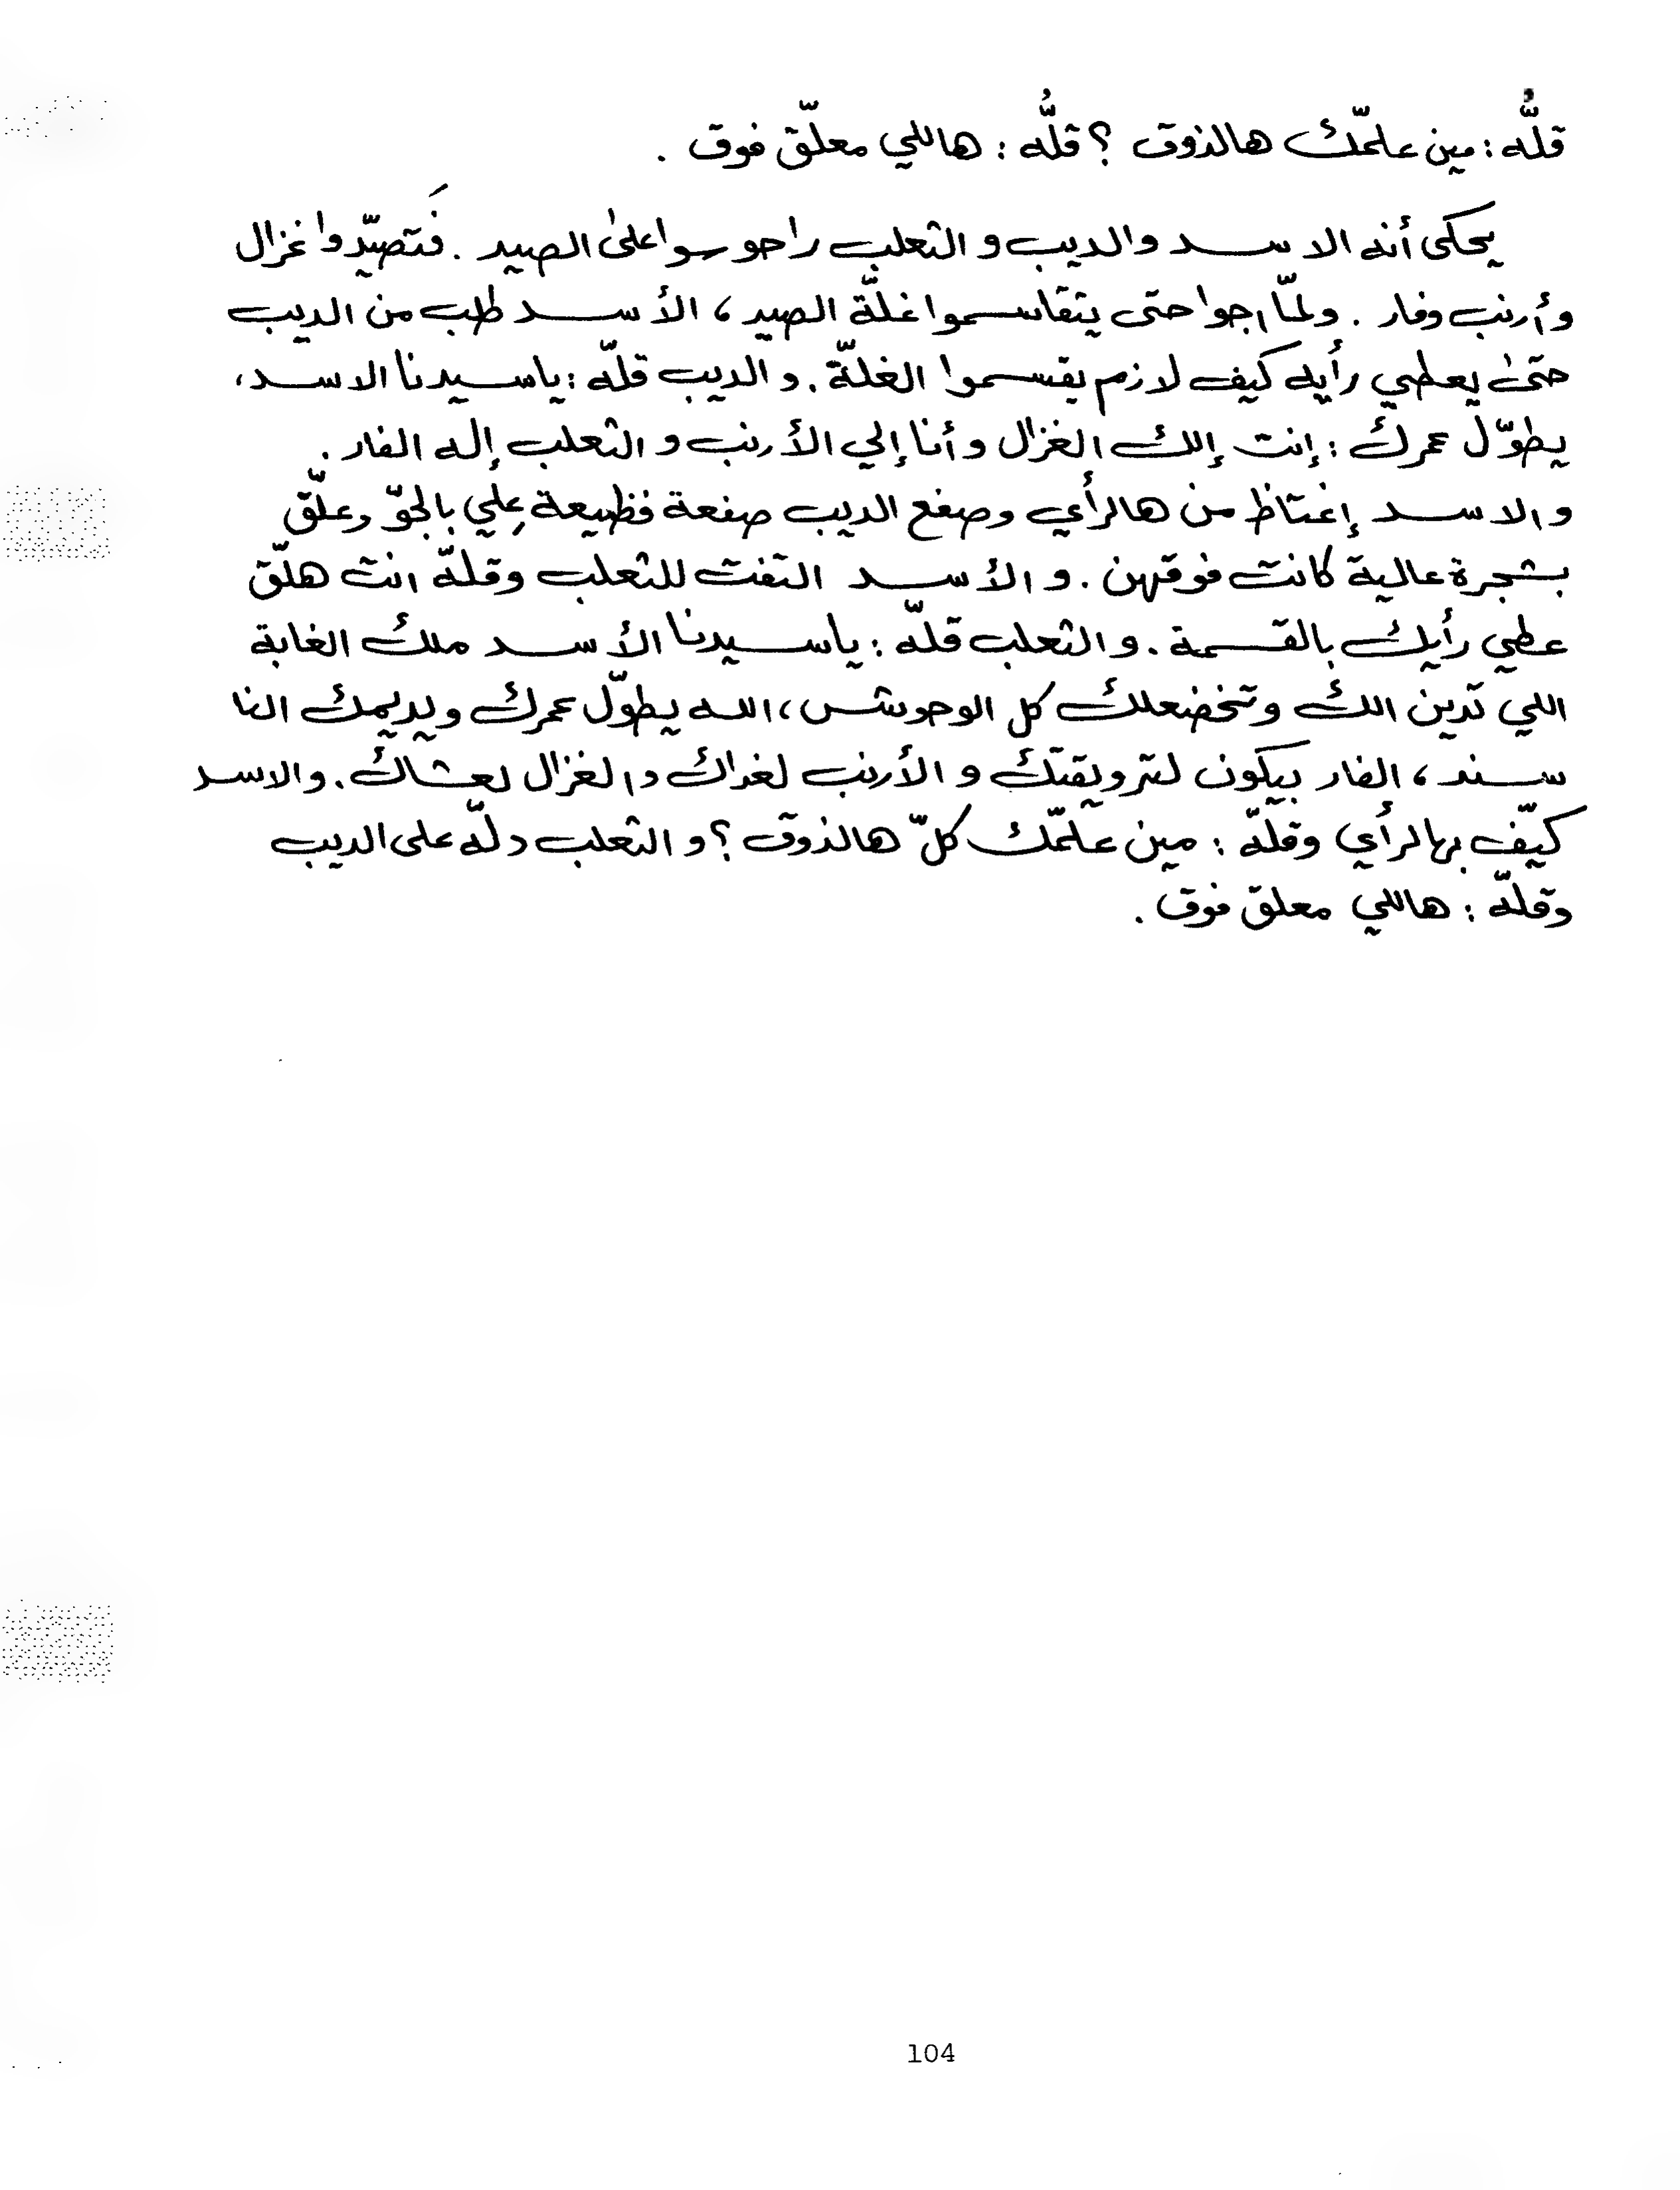 قلُّه : مين علمّك هالذوق ؟ قلُّه : هاللي معلّق فوق .
يحكى أنه الاسد والديب و الثعلب راحو سوا على الصيد . فَتصيّدوا غزال
وأرنب وفار . ولمّا اجوا حتى يتقاسموا غلّة الصيد ، الأسد طلب من الديب
حتى يعطي رأيه كيف لازم يقسموا الغلّة . و الديب قلّه : ياسيدنا الاسد ،
يطوّل عمرك : إنت إلك الغزال و أنا إلي الأرنب و الثعلب إله الفار .
و الاسد إغتاظ من هالرأي وصفع الديب صفعة فظيعة عِلي بالجوّ وعلّق
بشجرة عالية كانت فوقهن . و الأسد التفت للثعلب وقلّه انت هلّق
عطي رأيك بالقسمة . و الثعلب قلّه : ياسيدنا الأسد ملك الغابة
اللي تدين الك وتخضعلك كل الوحوش ، الله يطوّل عمرك ويديمك النا
سند ، الفار بيكون لترويقتك و الأرنب لغداك و الغزال لعشاك . والاسد
كيّف بهالرأي وقلّه : مين علمّك كلّ هالذوق ؟ و الثعلب دلّه على الديب
وقلّه : هاللي معلق فوق .
104